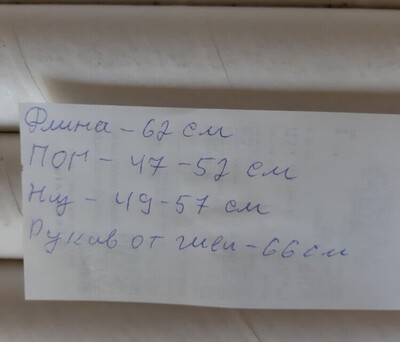 Длина - 62 см
ПОГ - 47 - 52 см
Низ - 49 - 57 см
Рукав от шеи - 66 см